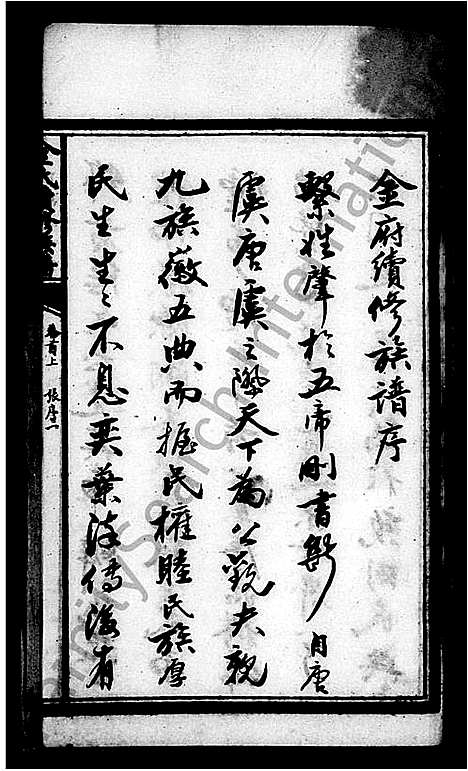 金府續修族譜序
繫姓肇於五帝刪書斷自唐
虞唐虞之際天下為公觀夫親
九族徽五典而握民權睦民族厚
民生生〻不息奕葉流傳海有
卷首上 張序一